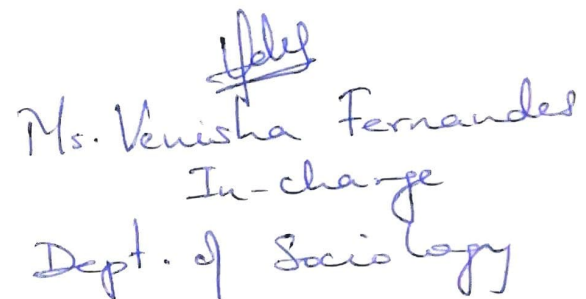 Ms. Venisha Fernandes
In-charge
Dept. of Sociology